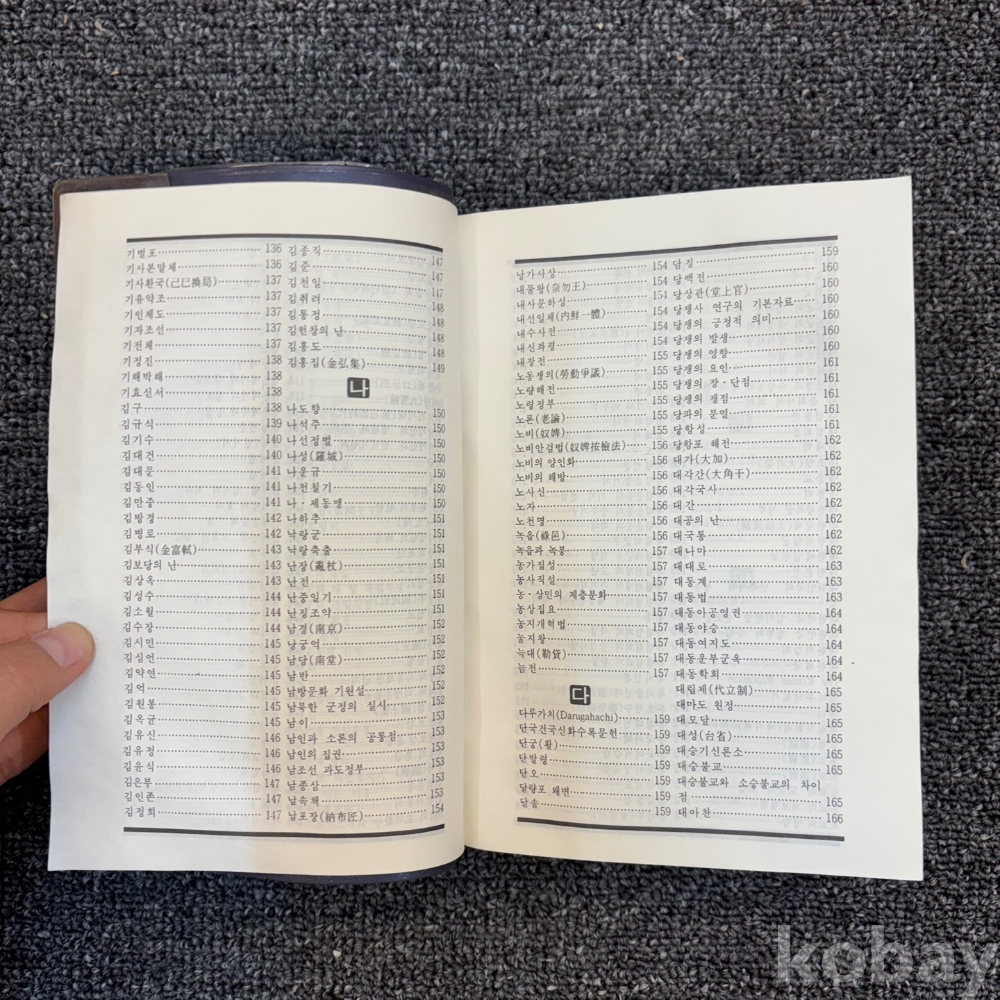 기벌포 136
기사본말체 136
기사환국(己巳換局) 137
기유약조 137
기인제도 137
기자조선 137
기전체 137
기정진 138
기해박해 138
기효신서 138
김구 138
김규식 139
김기수 140
김대건 140
김대문 141
김동인 141
김만중 141
김방경 142
김병로 142
김부식(金富軾) 143
김보당의 난 143
김상옥 143
김성수 144
김소월 144
김수장 144
김시민 145
김심언 145
김약연 145
김억 145
김원봉 145
김옥균 145
김유신 146
김유정 146
김윤식 146
김은부 147
김인존 147
김정희 147
김종직 147
김준 147
김천일 147
김취려 148
김통정 148
김헌창의 난 148
김홍도 148
김홍집(金弘集) 149
나
나도향 150
나석주 150
나선정벌 150
나성(羅城) 150
나운규 150
나전칠기 150
나·제동맹 150
나하추 151
낙랑군 151
낙랑축출 151
난장(亂杖) 151
난전 151
난중일기 151
난징조약 151
남경(南京) 152
남궁억 152
남당(南堂) 152
남반 152
남방문화 기원설 152
남북한 군정의 실시 152
남이 153
남인과 소론의 공통점 153
남인의 집권 153
남조선 과도정부 153
남종삼 153
납속책 153
납포장(納布匠) 154
낭가사상 154
내물왕(奈勿王) 154
내사문하성 154
내선일체(内鮮一體) 154
내수사전 154
내신좌평 154
내장전 155
노동쟁의(勞動爭議) 155
노량해전 155
노령정부 155
노론(老論) 155
노비(奴婢) 155
노비안검법(奴婢按檢法) 155
노비의 양인화 156
노비의 해방 156
노사신 156
노자 156
노천명 156
녹읍(祿邑) 156
녹읍과 녹봉 156
농가집성 157
농사직설 157
농·상민의 계층분화 157
농상집요 157
농지개혁법 157
눌지왕 157
늑대(勒貸) 157
늠전 157
다
다루가치(Darugahachi) 159
단국건국신화수록문헌 159
단궁(檀弓) 159
단발령 159
단오 159
달량포 왜변 159
달솔 159
담징 159
당백전 160
당상관(堂上官) 160
당쟁사 연구의 기본자료 160
당쟁의 긍정적 의미 160
당쟁의 발생 160
당쟁의 영향 161
당쟁의 요인 161
당쟁의 장·단점 161
당쟁의 쟁점 161
당파의 분열 161
당항성 162
당항포 해전 162
대가(大加) 162
대각간(大角干) 162
대각국사 162
대간 162
대공의 난 162
대국통 162
대나마 162
대대로 163
대동계 163
대동법 163
대동아공영권 163
대동야승 164
대동여지도 164
대동운부군옥 164
대동학회 164
대립제(代立制) 165
대마도 원정 165
대모달 165
대성(台省) 165
대승기신론소 165
대승불교 165
대승불교와 소승불교의 차이
점 165
대아찬 166
kobay